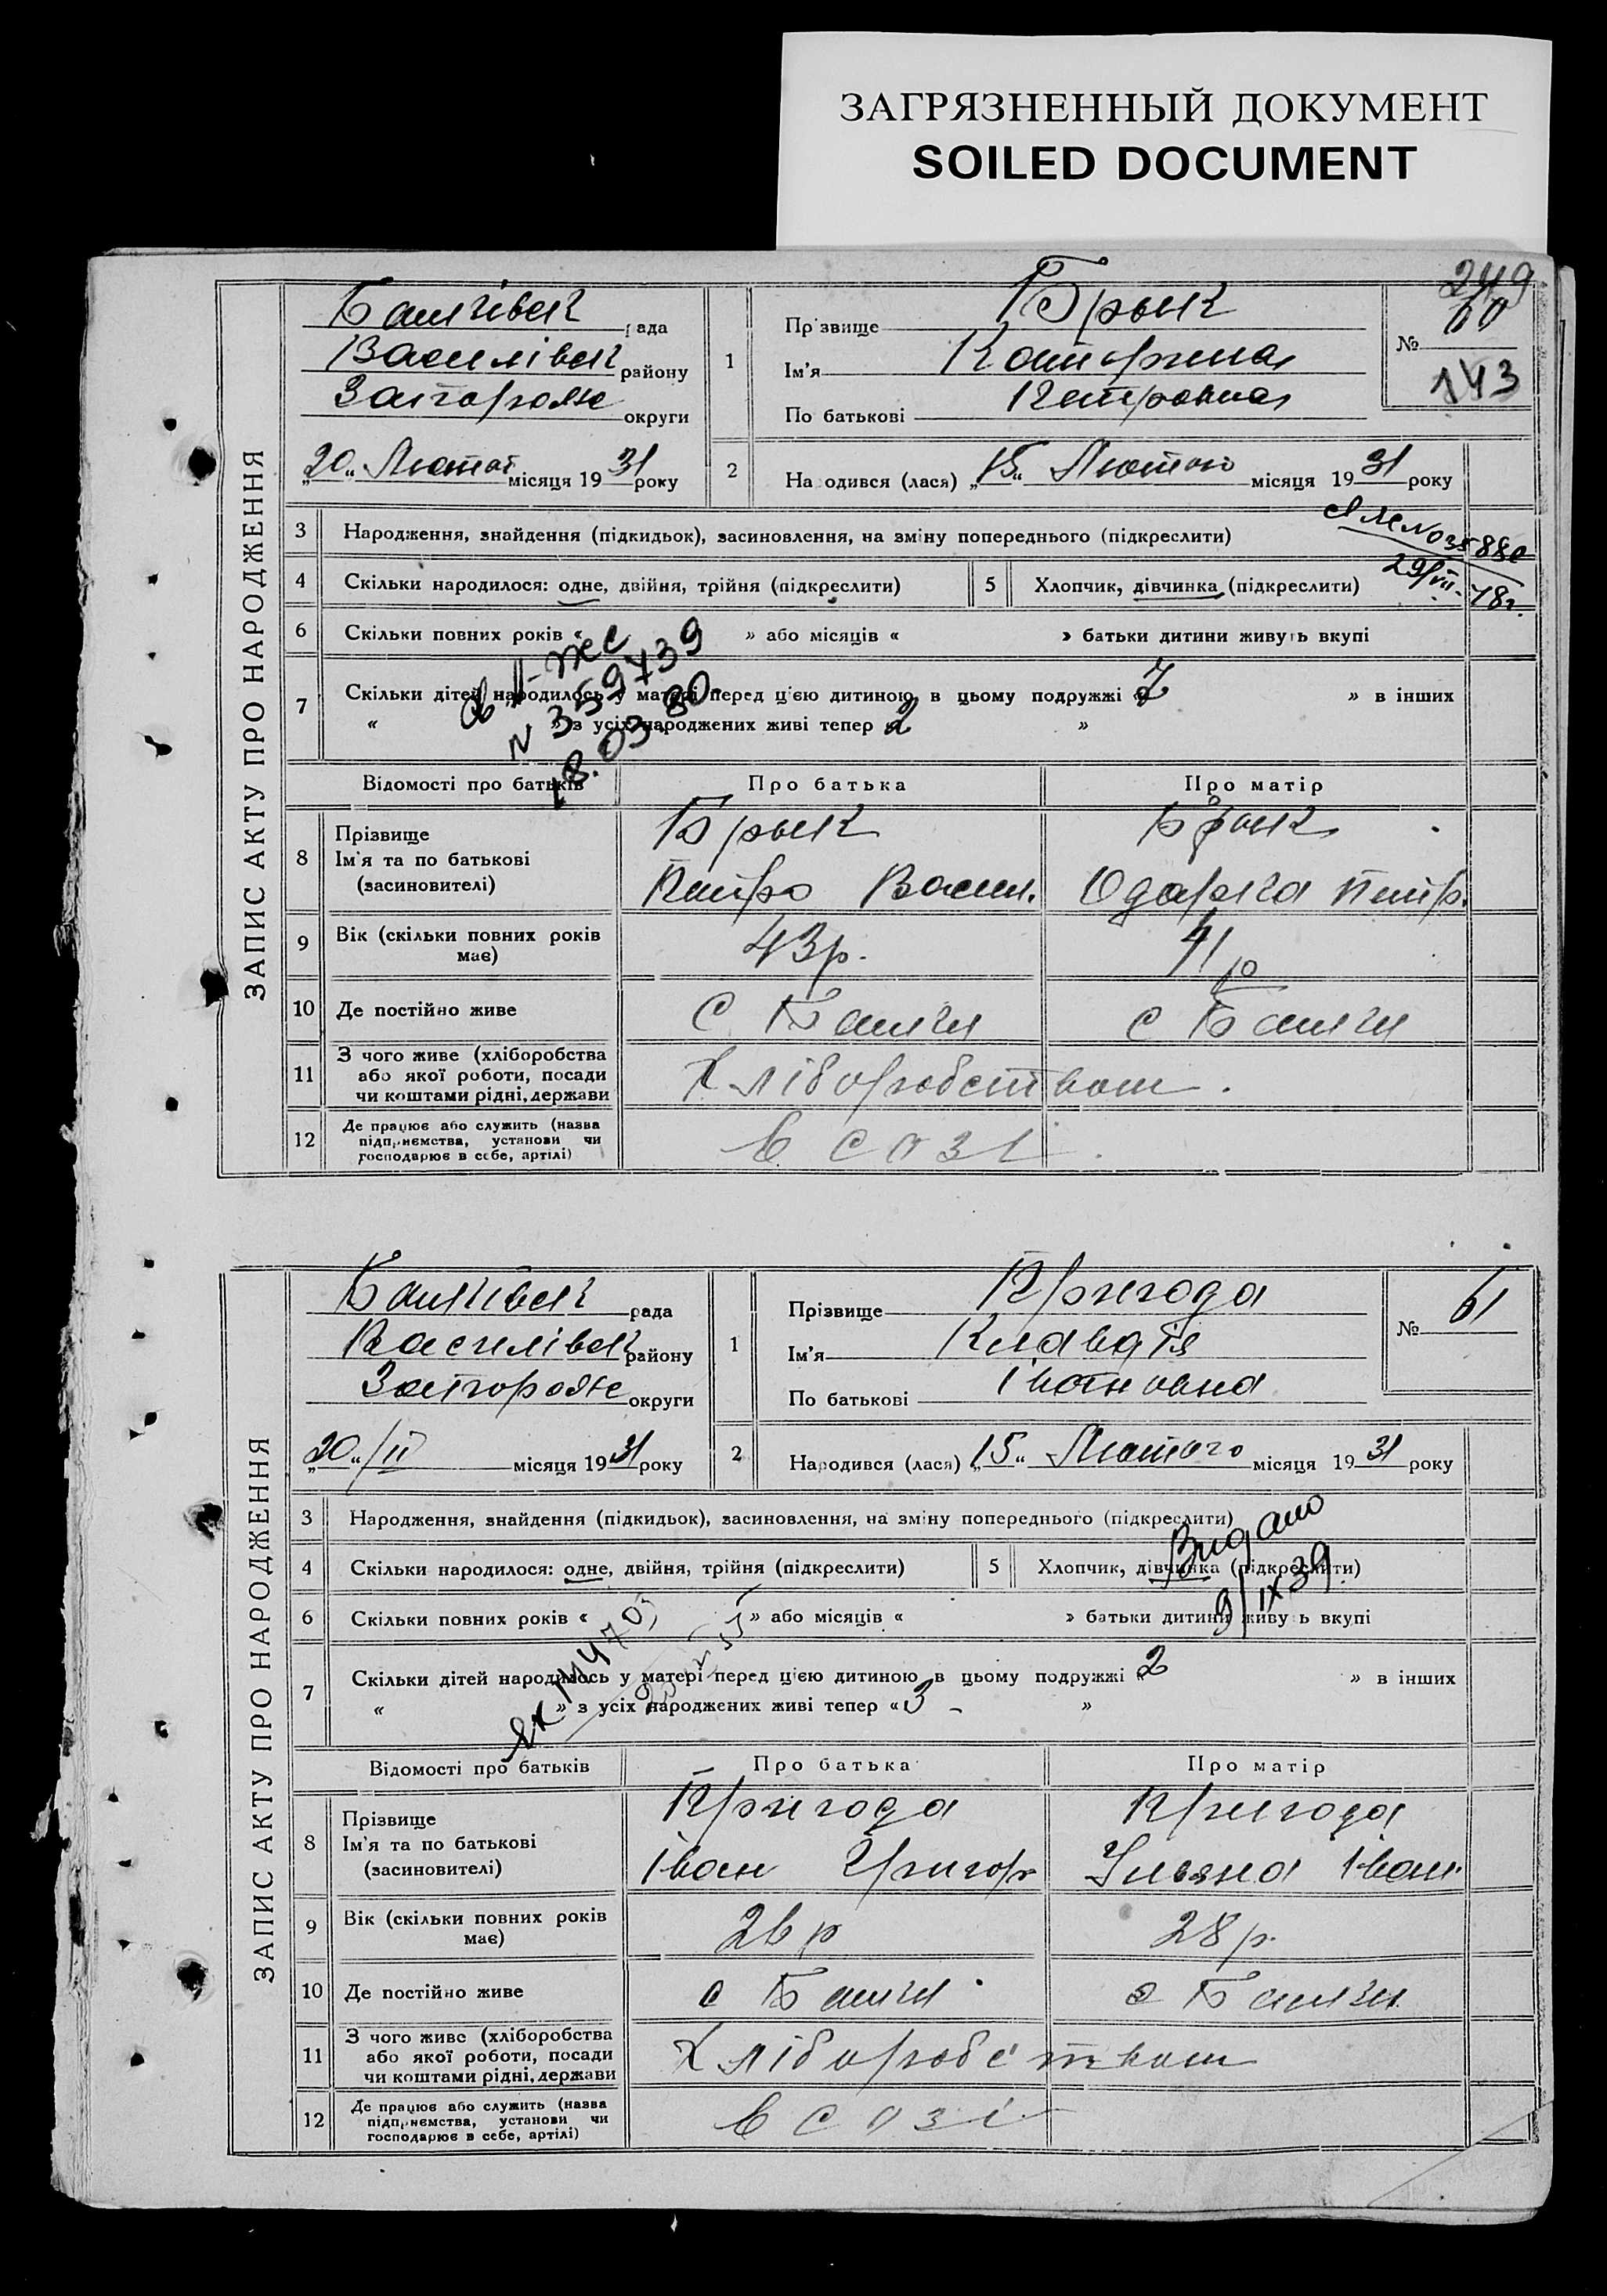 ЗАГРЯЗНЕННЫЙ ДОКУМЕНТ
SOILED DOCUMENT
249
ЗАПИС АКТУ ПРО НАРОДЖЕННЯ
Балківськ рада
Василівськ району
Запоріжжс округи
1 Прізвище Брык
Ім'я Катерина
По батькові Петровна
№ 60
143
„20" Лютого місяця 1931 року
2 Народився (лася) „15" Лютого місяця 1931 року
3 Народження, знайдення (підкидьок), засиновлення, на зміну попереднього (підкреслити)
4 Скільки народилося: одне, двійня, трійня (підкреслити)
5 Хлопчик, дівчинка (підкреслити)
6 Скільки повних років « » або місяців « » батьки дитини живуть вкупі
7 Скільки дітей народилось у матері перед цією дитиною в цьому подружжі « » в інших
« » з усіх народжених живі тепер «2 »
N 359739
18.03.80.
Відомості про батьків Про батька Про матір
8 Прізвище
Ім'я та по батькові
(засиновителі)
Брык Брык
Петро Васил. Одарка Петр.
9 Вік (скільки повних років має)
43р. 41 р
10 Де постійно живе
с Балки с Балки
11 З чого живе (хліборобства
або якої роботи, посади
чи коштами рідні, держави
Хліборобством.
12 Де працює або служить (назва
підприємства, установи чи
господарює в себе, артілі)
в созі.
ЗАПИС АКТУ ПРО НАРОДЖЕННЯ
Балківськ рада
Василівськ району
Запоріжжс округи
1 Прізвище Пригода
Ім'я Клавдія
По батькові Івановна
№ 61
„20"/II місяця 1931 року
2 Народився (лася) „15" Лютого місяця 1931 року
3 Народження, знайдення (підкидьок), засиновлення, на зміну попереднього (підкреслити)
4 Скільки народилося: одне, двійня, трійня (підкреслити)
5 Хлопчик, дівчинка (підкреслити)
Видано
9/IX 39
6 Скільки повних років « » або місяців « » батьки дитини живуть вкупі
7 Скільки дітей народилось у матері перед цією дитиною в цьому подружжі «2 » в інших
« » з усіх народжених живі тепер «3 - »
Відомості про батьків Про батька Про матір
8 Прізвище
Ім'я та по батькові
(засиновителі)
Пригода Пригода
Іван Григор Ульяна Іван.
9 Вік (скільки повних років має)
26 р 28 р.
10 Де постійно живе
с Балки с Балки
11 З чого живе (хліборобства
або якої роботи, посади
чи коштами рідні, держави
Хліборобством
12 Де працює або служить (назва
підприємства, установи чи
господарює в себе, артілі)
в созі